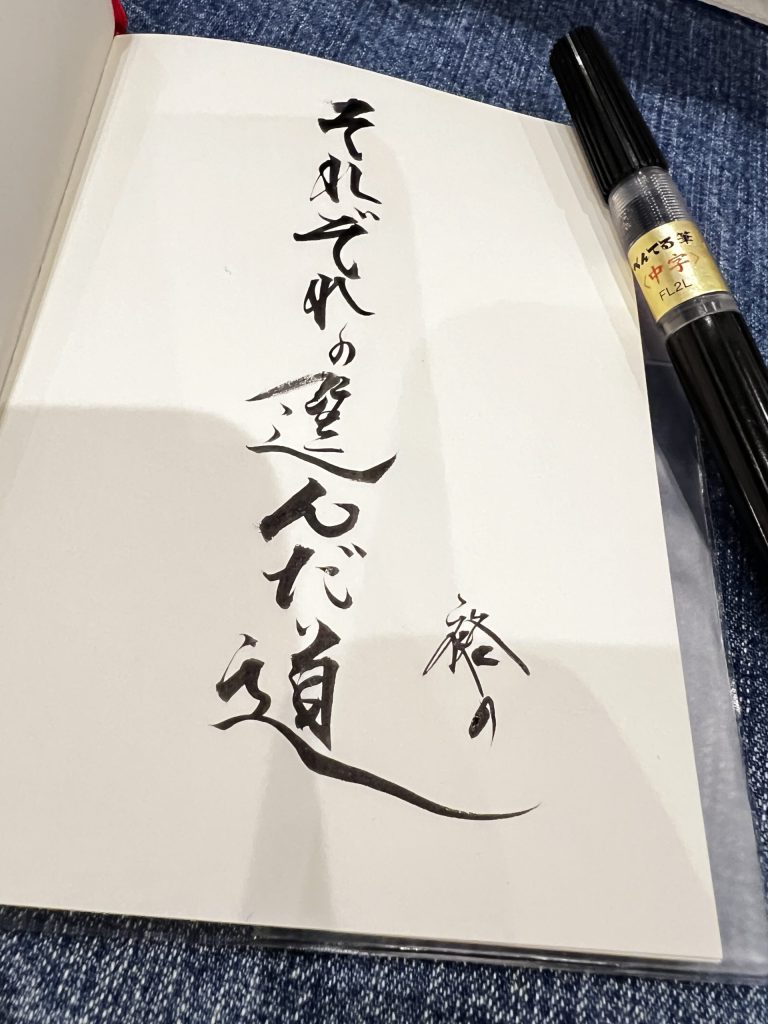 それぞれの選んだ道
裕の
ぺんてる筆
〈中字〉
FL2L